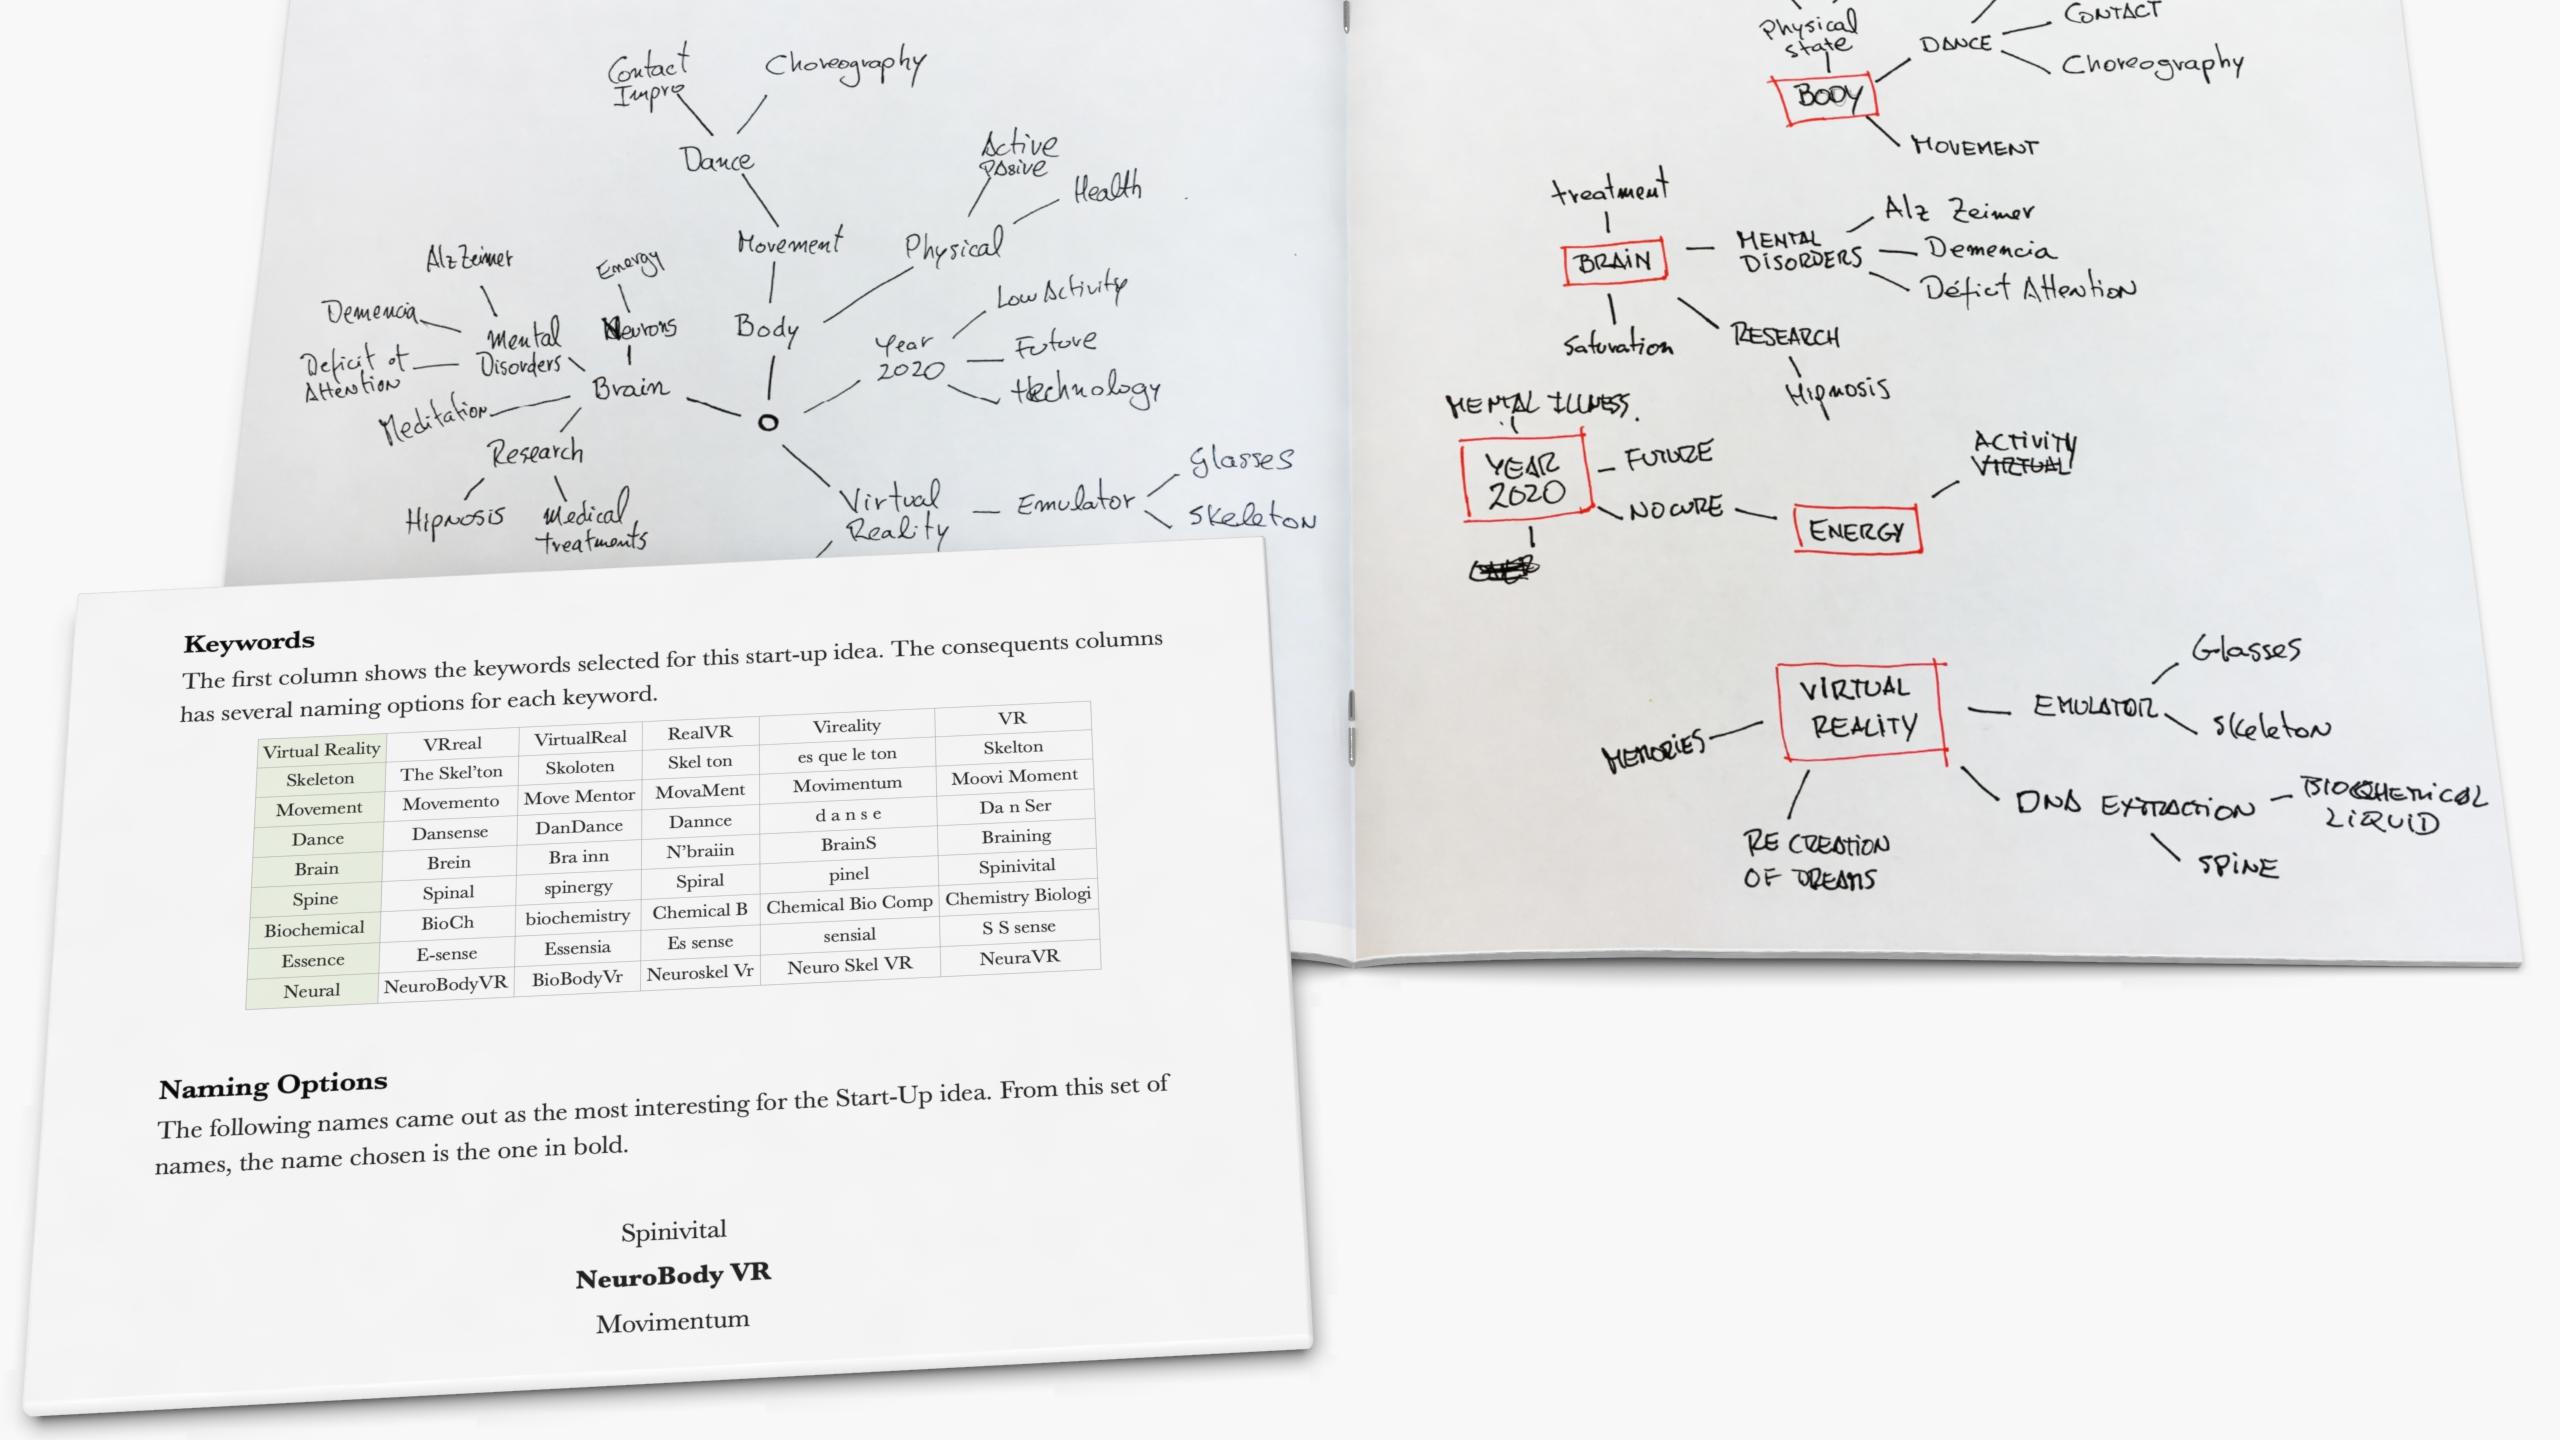 Contact
Impro
Choreography
Dance
Active
PAsive
Health
Movement
Physical
AlzZeimer
Energy
Demencia
Mental
Disorders
Neurons
Body
Low Activity
Year
2020
Future
technology
Deficit of
Attention
Meditation
Brain
O
Research
Hipnosis
Medical
treatments
Virtual
Reality
Emulator
Glasses
Skeleton
Physical
state
DANCE
CONTACT
Choreography
BODY
MOVEMENT
treatment
BRAIN
MENTAL
DISORDERS
Alz Zeimer
Demencia
Déficit Attention
Saturation
RESEARCH
Hipnosis
MENTAL ILLNESS.
YEAR
2020
FUTURE
NO CURE
ENERGY
ACTIVITY
VIRTUAL
VIRTUAL
REALITY
MEMORIES
EMULATOR
Glasses
Skeleton
DNA EXTRACTION
BIOCHEMICAL
LIQUID
SPINE
RE CREATION
OF DREAMS
Keywords
The first column shows the keywords selected for this start-up idea. The consequents columns
has several naming options for each keyword.
Virtual Reality VRreal VirtualReal RealVR Vireality VR
Skeleton The Skel'ton Skoloten Skel ton es que le ton Skelton
Movement Movemento Move Mentor MovaMent Movimentum Moovi Moment
Dance Dansense DanDance Dannce d a n s e Da n Ser
Brain Brein Bra inn N'braiin BrainS Braining
Spine Spinal spinergy Spiral pinel Spinivital
Biochemical BioCh biochemistry Chemical B Chemical Bio Comp Chemistry Biologi
Essence E-sense Essensia Es sense sensial S S sense
Neural NeuroBodyVR BioBodyVr Neuroskel Vr Neuro Skel VR NeuraVR
Naming Options
The following names came out as the most interesting for the Start-Up idea. From this set of
names, the name chosen is the one in bold.
Spinivital
NeuroBody VR
Movimentum